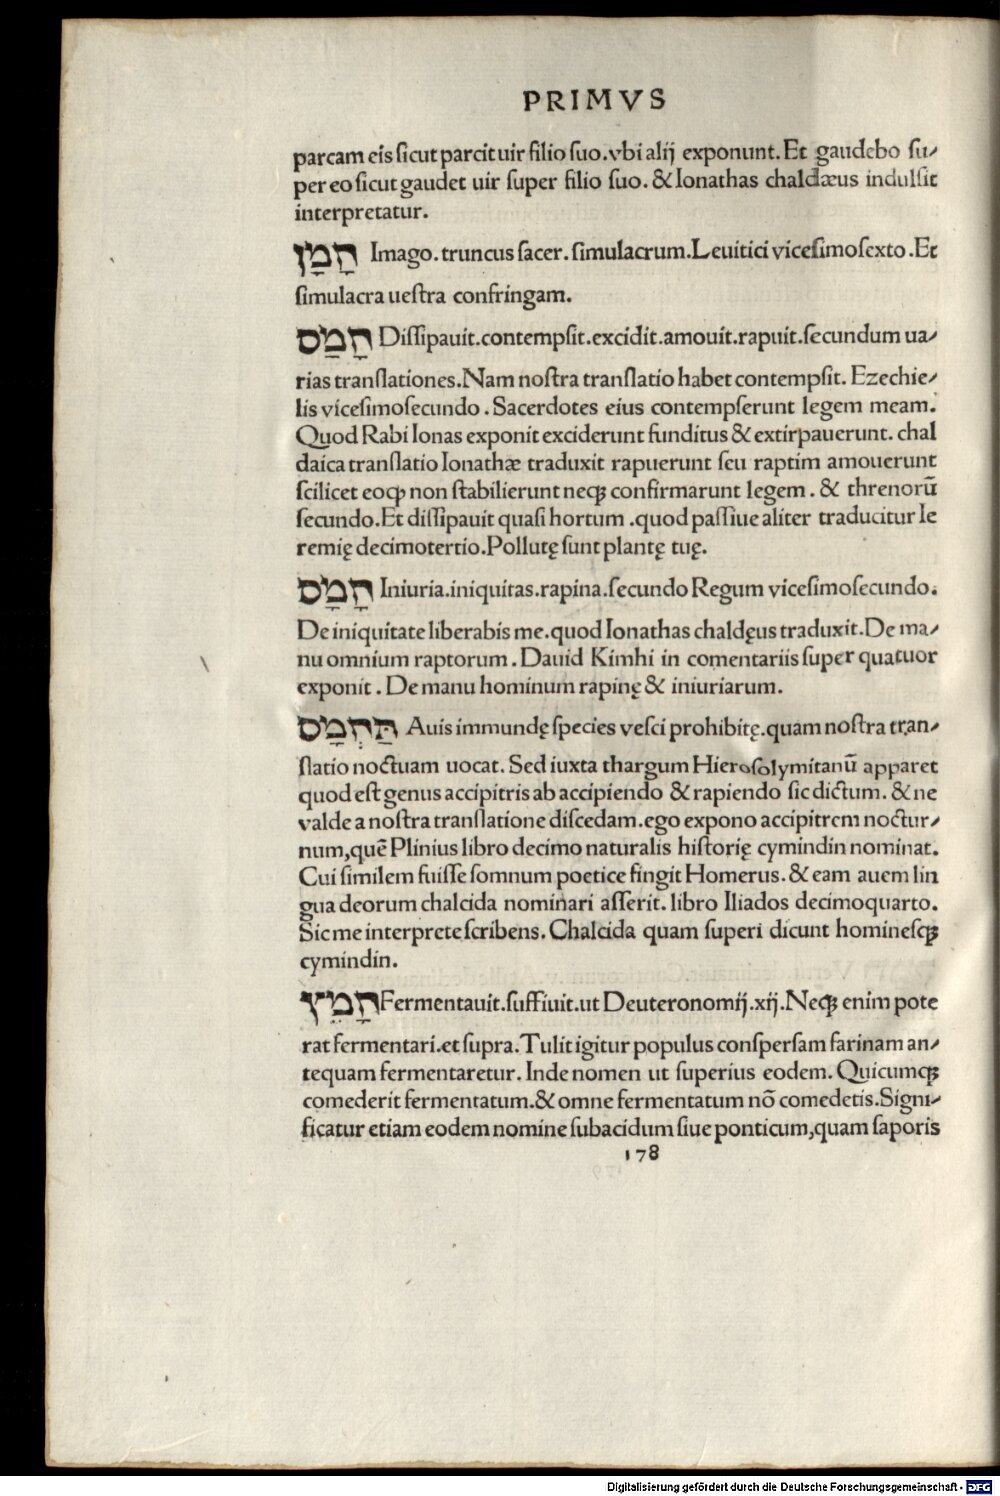 PRIMVS
parcam eis ſicut parcit uir filio ſuo.vbi alij exponunt.Et gaudebo ſu⸗
per eo ſicut gaudet uir ſuper filio ſuo.&Ionathas chaldæus indulſit
interpretatur.
חָמָן Imago.truncus ſacer.ſimulacrum.Leuitici viceſimoſexto.Et
ſimulacra ueſtra confringam.
חָמַס Diſſipauit.contempſit.excidit.amouit.rapuit.ſecundum ua⸗
rias tranſlationes.Nam noſtra tranſlatio habet contempſit. Ezechie⸗
lis viceſimoſecundo.Sacerdotes eius contempſerunt legem meam.
Quod Rabi Ionas exponit exciderunt funditus & extirpauerunt. chal
daica tranſlatio Ionathæ traduxit rapuerunt ſeu raptim amouerunt
ſcilicet eoqꝫ non ſtabilierunt neqꝫ confirmarunt legem. & threnorū
ſecundo.Et diſſipauit quaſi hortum.quod paſſiue aliter traducitur Ie
remię decimotertio.Pollutę ſunt plantę tuę.
חָמָס Iniuria.iniquitas.rapina.ſecundo Regum viceſimoſecundo.
De iniquitate liberabis me.quod Ionathas chaldęus traduxit.De ma⸗
nu omnium raptorum.Dauid Kimhi in comentariis ſuper quatuor
exponit. De manu hominum rapinę & iniuriarum.
תַּחְמָס Auis immundę ſpecies veſci prohibitę.quam noſtra tran⸗
ſlatio noctuam uocat. Sed iuxta thargum Hieroſolymitanū apparet
quod eſt genus accipitris ab accipiendo & rapiendo ſic dictum. & ne
valde a noſtra tranſlatione diſcedam.ego expono accipitrem noctur⸗
num,quē Plinius libro decimo naturalis hiſtorię cymindin nominat.
Cui ſimilem fuiſſe ſomnum poetice fingit Homerus.& eam auem lin
gua deorum chalcida nominari aſſerit. libro Iliados decimoquarto.
Sic me interprete ſcribens. Chalcida quam ſuperi dicunt hominesqꝫ
cymindin.
חָמֵץ Fermentauit.ſuffiuit.ut Deuteronomij.xij.Neqꝫ enim pote
rat fermentari.et ſupra.Tulit igitur populus conſperſam farinam an⸗
tequam fermentaretur. Inde nomen ut ſuperius eodem. Quicumqꝫ
comederit fermentatum.& omne fermentatum nō comedetis.Signi⸗
ficatur etiam eodem nomine ſubacidum ſiue ponticum,quam ſaporis
178
Digitalisierung gefördert durch die Deutsche Forschungsgemeinschaft - DFG